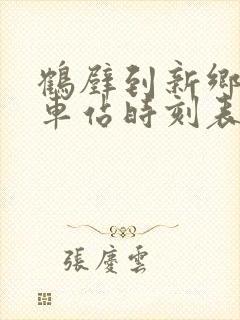 鶴壁到新鄉
車佔時刻表
張慶雲